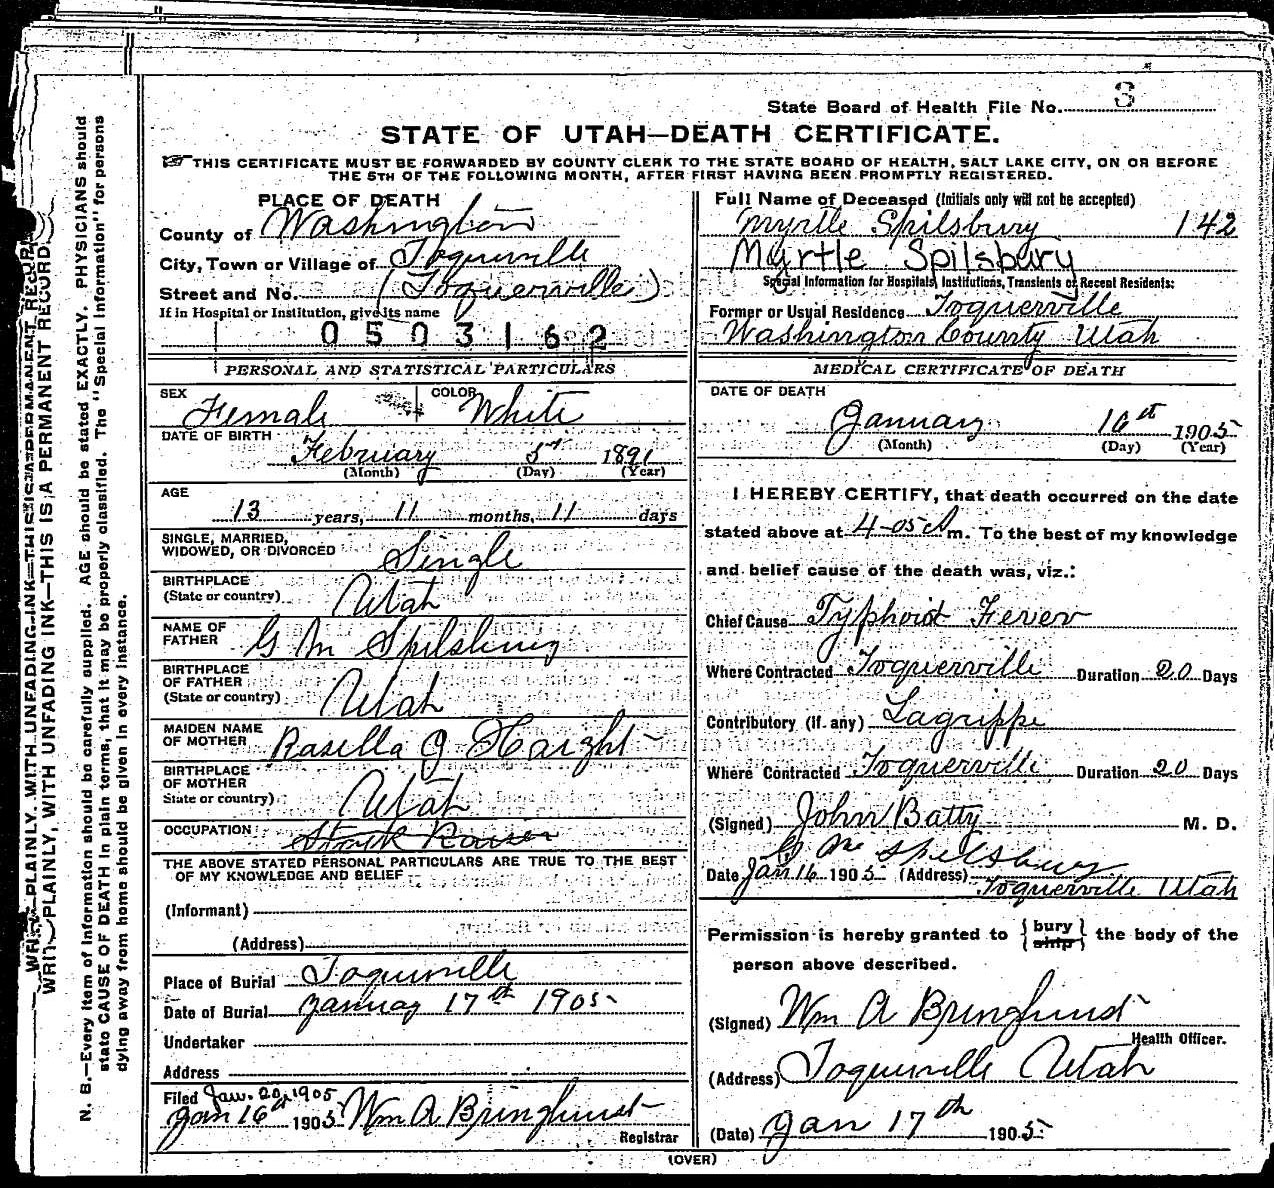 State Board of Health File No. 3
STATE OF UTAH—DEATH CERTIFICATE.
THIS CERTIFICATE MUST BE FORWARDED BY COUNTY CLERK TO THE STATE BOARD OF HEALTH, SALT LAKE CITY, ON OR BEFORE
THE 5TH OF THE FOLLOWING MONTH, AFTER FIRST HAVING BEEN PROMPTLY REGISTERED.
PLACE OF DEATH
County of Washington
City, Town or Village of Toquerville
Street and No. (Toquerville)
If in Hospital or Institution, give its name
0503162
PERSONAL AND STATISTICAL PARTICULARS
SEX Female COLOR White
DATE OF BIRTH February 5 1891
(Month) (Day) (Year)
AGE
13 years, 11 months, 11 days
SINGLE, MARRIED,
WIDOWED, OR DIVORCED Single
BIRTHPLACE
(State or country) Utah
NAME OF
FATHER G M Spilsbury
BIRTHPLACE
OF FATHER
(State or country) Utah
MAIDEN NAME
OF MOTHER Rasilla J Haight
BIRTHPLACE
OF MOTHER
State or country) Utah
OCCUPATION Stock Raiser
THE ABOVE STATED PERSONAL PARTICULARS ARE TRUE TO THE BEST
OF MY KNOWLEDGE AND BELIEF
(Informant)
(Address)
Place of Burial Toquerville
Date of Burial January 17th 1905
Undertaker
Address
Filed Jan. 20, 1905
Jan 16th 1905 Wm A Bringhurst
Registrar
Full Name of Deceased (Initials only will not be accepted)
Myrtle Spilsbury 142
Myrtle Spilsbury
Special Information for Hospitals, Institutions, Transients or Recent Residents:
Former or Usual Residence Toquerville
Washington County Utah
MEDICAL CERTIFICATE OF DEATH
DATE OF DEATH
January 16th 1905
(Month) (Day) (Year)
I HEREBY CERTIFY, that death occurred on the date
stated above at 4-05 A m. To the best of my knowledge
and belief cause of the death was, viz.:
Chief Cause Typhoid Fever
Where Contracted Toquerville Duration 20 Days
Contributory (if any) Lagrippe
Where Contracted Toquerville Duration 20 Days
(Signed) John Batty M. D.
G M Spilsbury
Date Jan 16 1905 (Address) Toquerville Utah
Permission is hereby granted to {bury ship} the body of the
person above described.
(Signed) Wm A Bringhurst
Health Officer.
(Address) Toquerville Utah
(Date) Jan 17th 1905
(OVER)
WRITE PLAINLY, WITH UNFADING INK—THIS IS A PERMANENT RECORD.
WRITE PLAINLY, WITH UNFADING INK—THIS IS A PERMANENT RECORD.
N. B.—Every item of information should be carefully supplied. AGE should be stated EXACTLY. PHYSICIANS should
state CAUSE OF DEATH in plain terms, that it may be properly classified. The "Special Information" for persons
dying away from home should be given in every instance.